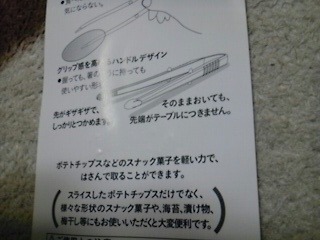 気にならない。
グリップ感を高めるハンドルデザイン
使いやすい形
先がギザギザで、
しっかりとつかめます。
そのままおいても、
先端がテーブルにつきません。
ポテトチップスなどのスナック菓子を軽い力で、
はさんで取ることができます。
スライスしたポテトチップスだけでなく、
様々な形状のスナック菓子や、海苔、漬け物、
梅干し等にもお使いいただくと大変便利です。